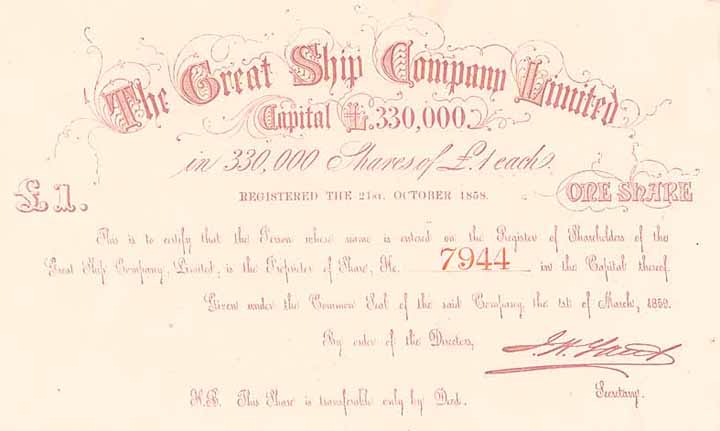 The Great Ship Company Limited
Capital £.330,000.
in 330,000 Shares of £.1 each.
REGISTERED THE 21ST. OCTOBER 1858.
£1. ONE SHARE
This is to certify that the Person whose name is entered on the Register of Shareholders of the
Great Ship Company, Limited, is the Proprietor of Share, No. 7944 in the Capital thereof.
Given under the Common Seal of the said Company, the 1st of March, 1859.
By order of the Directors,
Secretary.
N.B. This Share is transferable only by Deed.